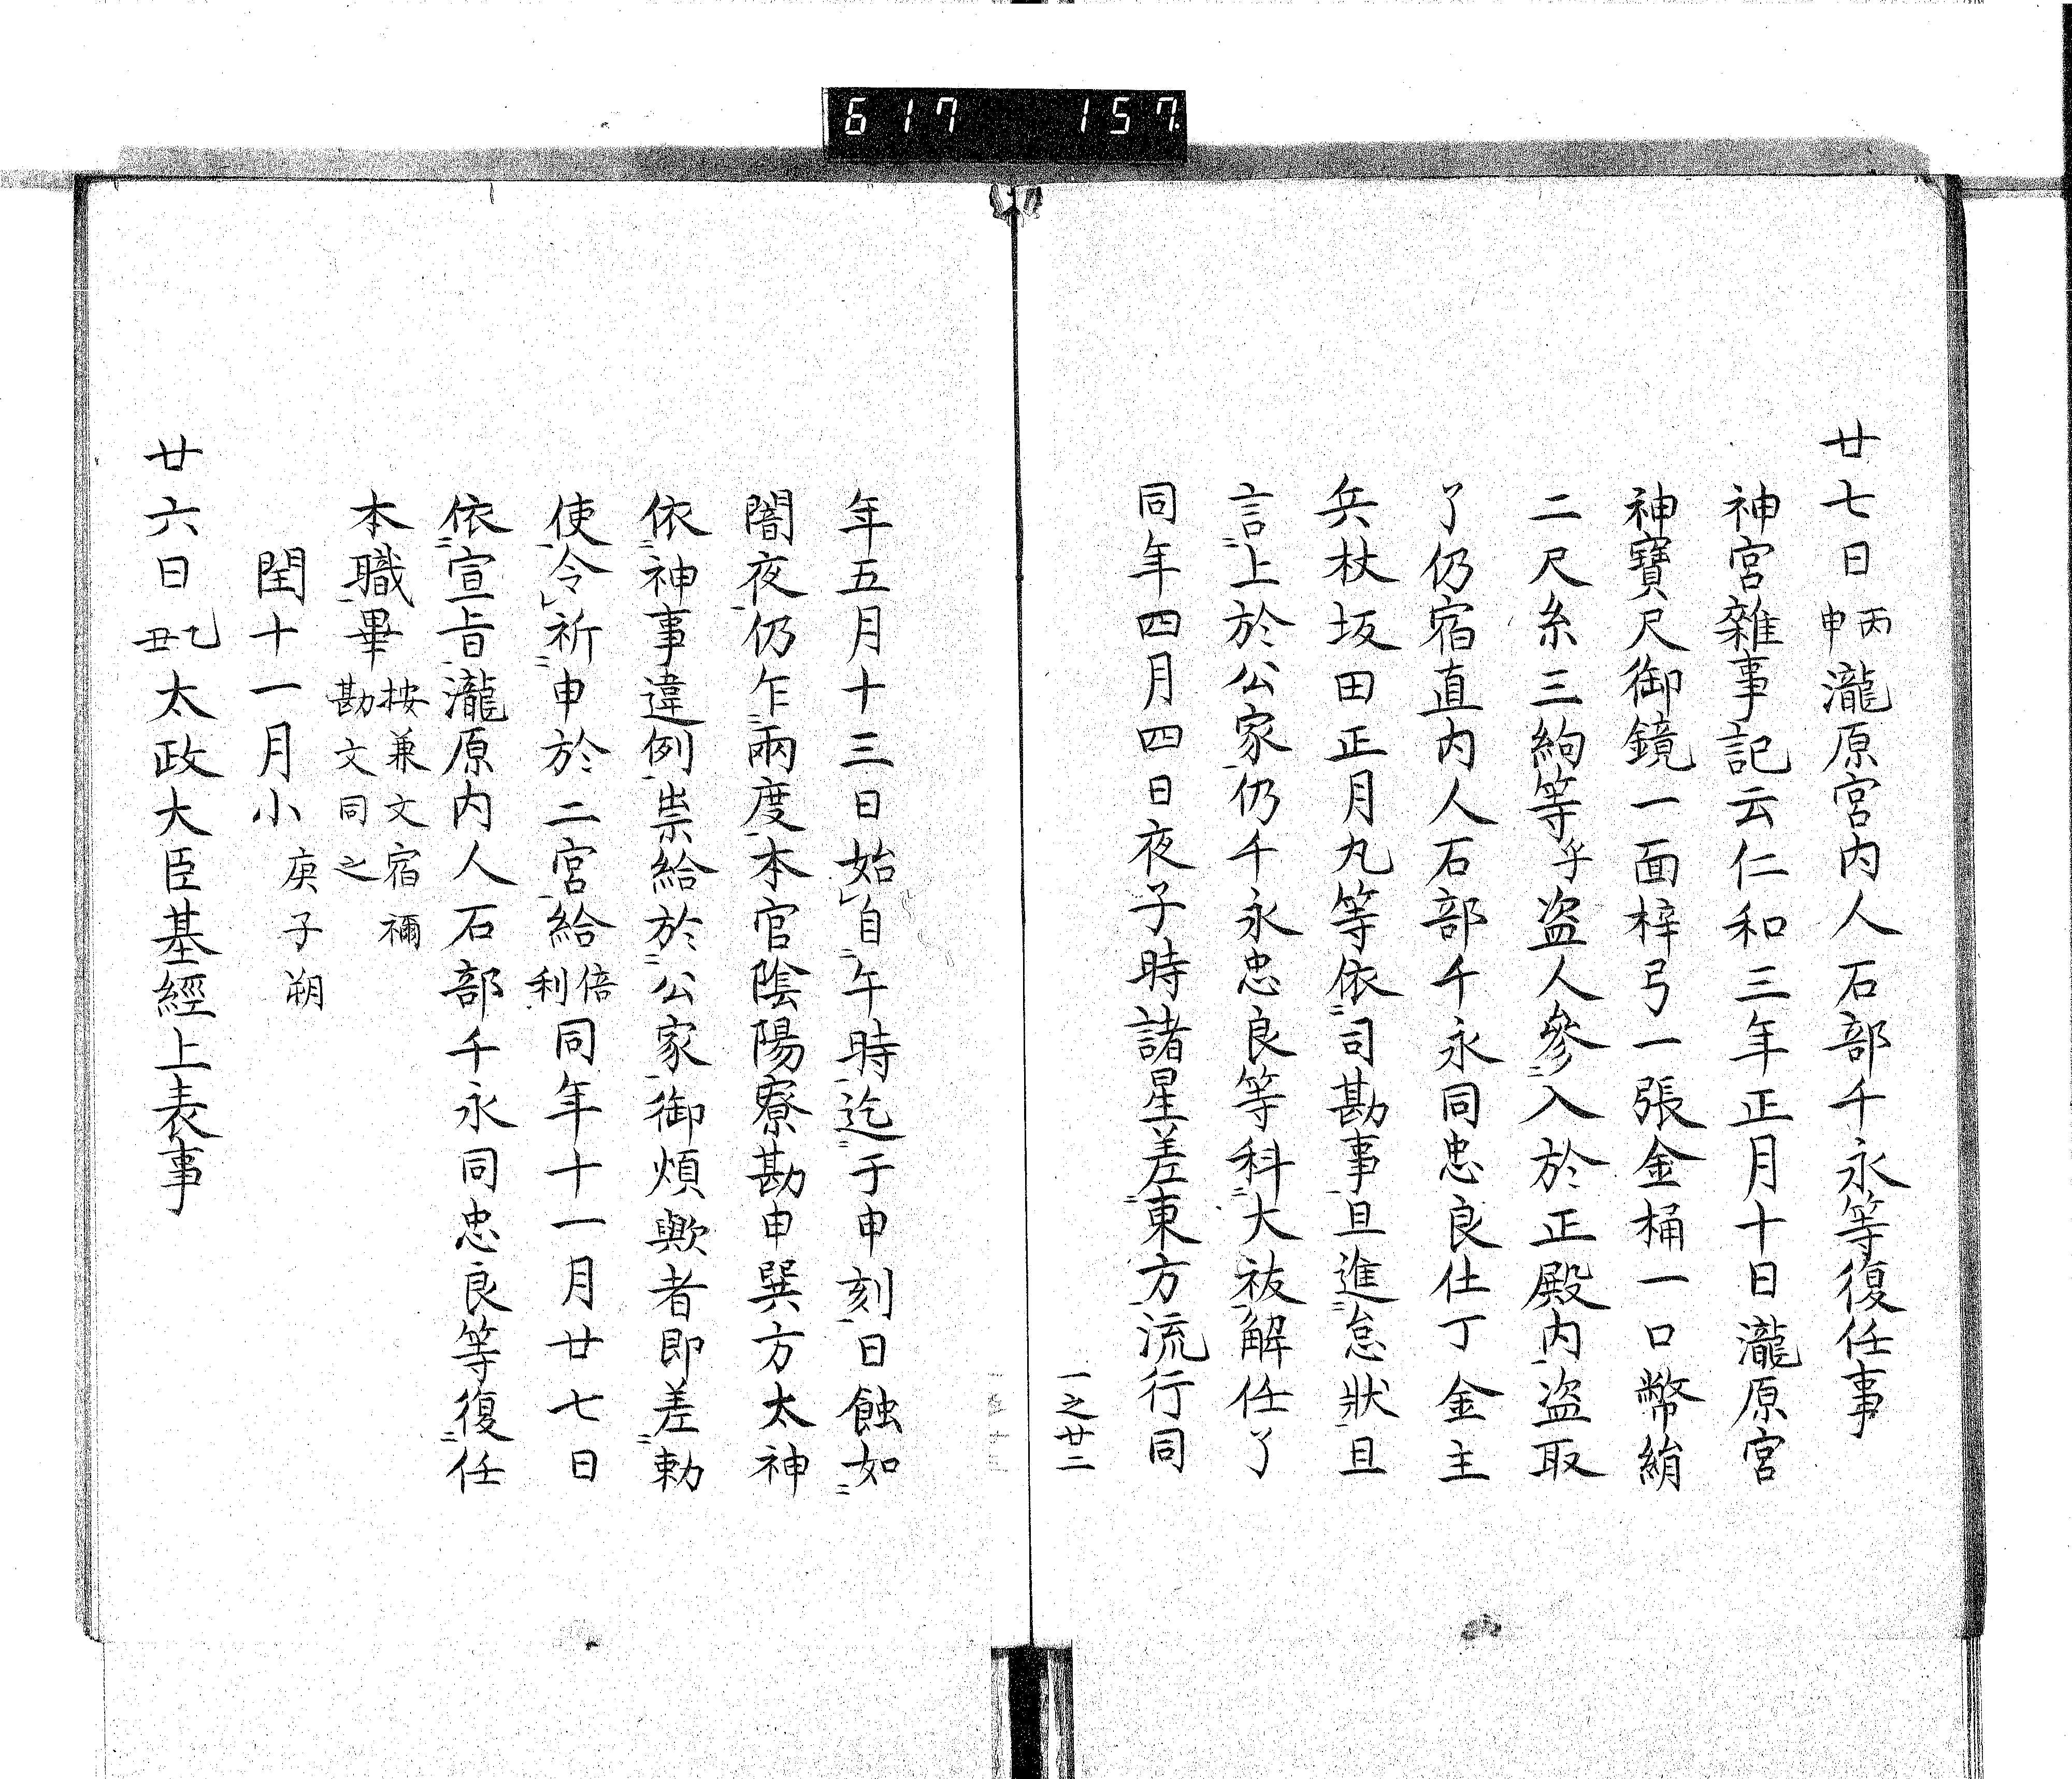 617 157
廿七日丙申瀧原宮内人石部千永等復任事
神宮雜事記云仁和三年正月十日瀧原宮
神寶尺御鏡一面梓弓一張金桶一口幣絹
二尺糸三絇等乎盗人參入於正殿内盗取
了仍宿直内人石部千永同忠良仕丁金主
兵杖坂田正月丸等依司勘事且進怠状且
言上於公家仍千永忠良等科大祓解任了
同年四月四日夜子時諸星差東方流行同
一之廿二
年五月十三日始自午時迄于申刻日蝕如
闇夜仍乍兩度本官陰陽寮勘申巽方太神
依神事違例祟給於公家御煩歟者即差勅
使令祈申於二宮給倍利同年十一月廿七日
依宣旨瀧原内人石部千永同忠良等復任
本職畢按兼文宿禰勘文同之
閏十一月小庚子朔
廿六日乙丑太政大臣基經上表事